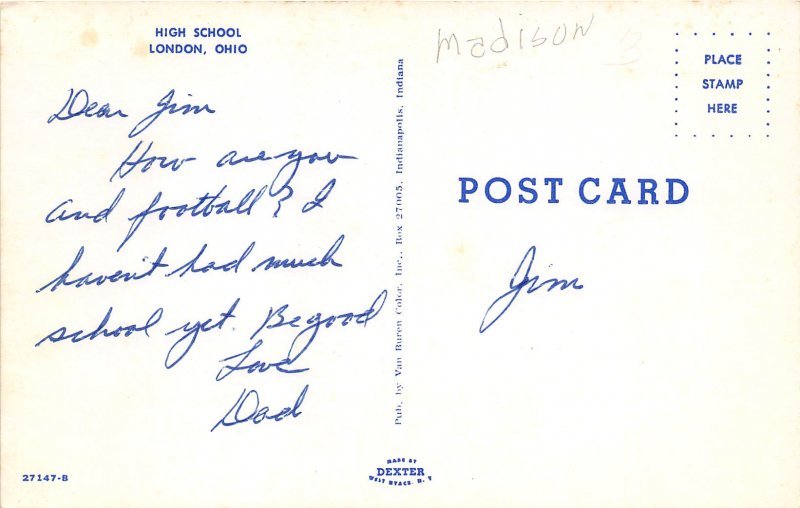 HIGH SCHOOL
LONDON, OHIO
Dear Jim
How are you
and football? I
haven't had much
school yet. Be good
Love
Dad
27147-B
Pub. by Van Buren Color, Inc., Box 27005, Indianapolis, Indiana
MADE BY
DEXTER
WEST NYACK, N. Y.
Madison
3
PLACE
STAMP
HERE
POST CARD
Jim